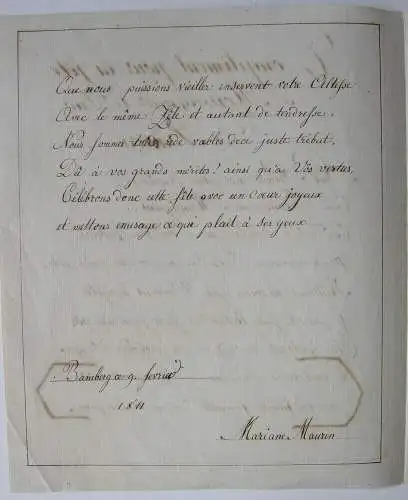 Que nous puissions vieiller inservent votre Celtesse
Avec le même Zêle et autant de tendresse.
Nous sommes bien rede vables dece juste tribut,
Dû à vos grands mérites! ainsi qu'a Vos vertus,
Célébrons donc cette fête avec un Cœur joyeux
et mettons enusage ce qui plait à ses yeux
Bamberg ce 9. fevrier
1811
Mariane Maurin